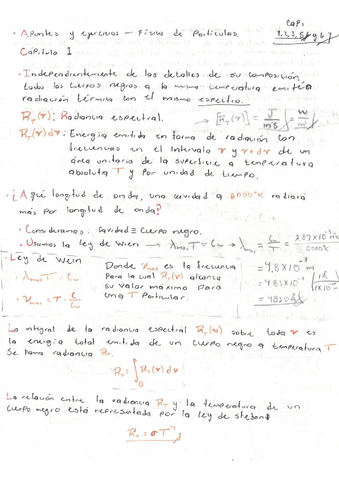 Cap:
· Apuntes y ejercicios – Física de Partículas. 1,2,3,5,6 y 7
Capítulo 1
· Independientemente de los detalles de su composición,
todos los cuerpos negros a la misma temperatura emiten
radiación térmica con el mismo espectro.
R_T(ν): Radiancia espectral. → [R_T(ν)] = J/m²s = W/m²
R_T(ν)dν: Energía emitida en forma de radiación con
frecuencias en el intervalo ν y ν+dν de un
área unitaria de la superficie a temperatura
absoluta T y por unidad de tiempo.
· ¿A qué longitud de onda, una cavidad a 6000°K radiará
más por longitud de onda?
· Consideramos: Cavidad ≡ Cuerpo negro.
· Usamos la ley de Wien → λmax T = Cw → λmax = Cw/T = 2,89×10⁻³ m/6000°K
· Ley de Wein
· λmax T = Cw
· νmax = T · c/Cw
Donde νmax es la frecuencia
para la cual R_T(ν) alcanza
su valor máximo para
una T Particular.
= 4,8×10⁻⁷ m
= 4,83×10⁻⁷ (1Å/1×10⁻¹⁰)
= 4830 Å
La integral de la radiancia espectral R_T(ν) sobre toda ν es
la energía total emitida de un cuerpo negro a temperatura T
Se llama radiancia R_T.
R_T = ∫₀ R_T(ν)dν
La relación entre la radiancia R_T y la temperatura de un
cuerpo negro está representada por la ley de stefan
R_T = σT⁴